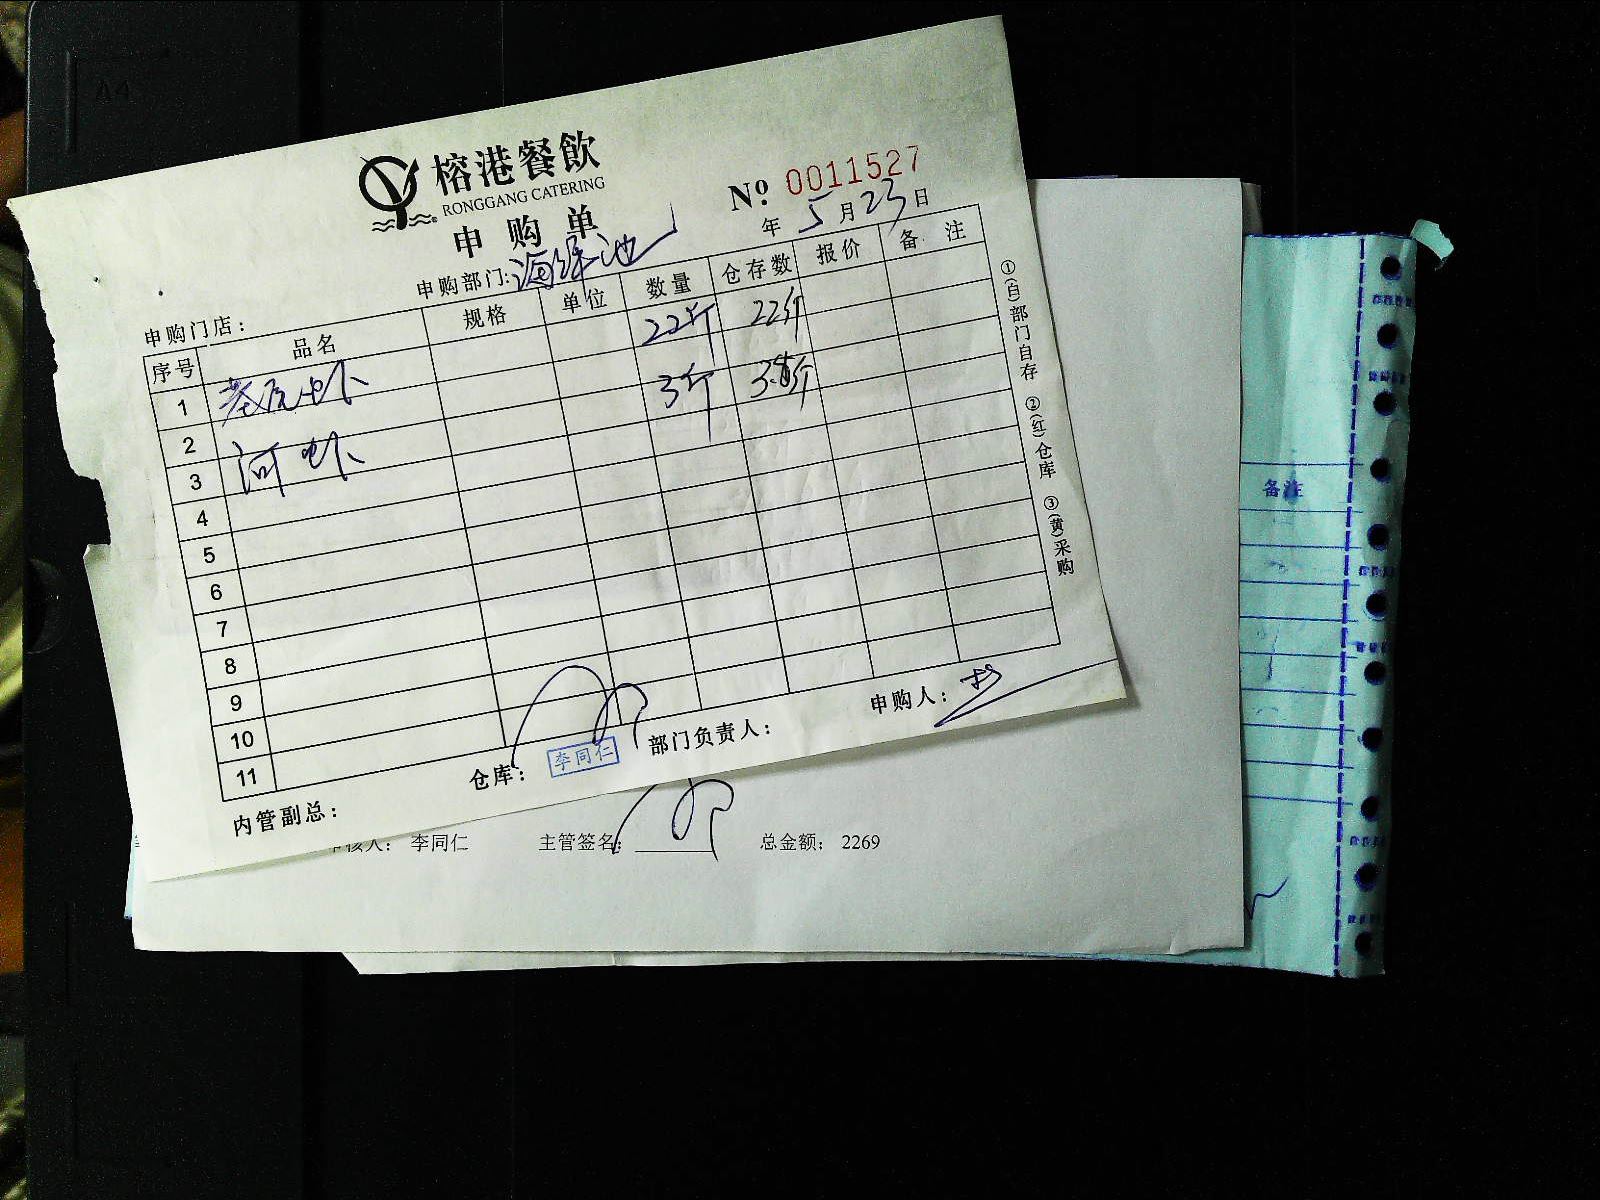 榕港餐飲
RONGGANG CATERING
申购单
№ 0011527
年 5 月 23 日
申购门店： 申购部门:海鲜池
序号 品名 规格 单位 数量 仓存数 报价 备注
1 基尾虾 22斤 22斤
2 河虾 3斤
3
4
5
6
7
8
9
10
11
①(白)部门自存 ②(红)仓库 ③(黄)采购
内管副总： 仓库： 李同仁 部门负责人： 申购人：
核人： 李同仁 主管签名： 总金额： 2269
备注
A4